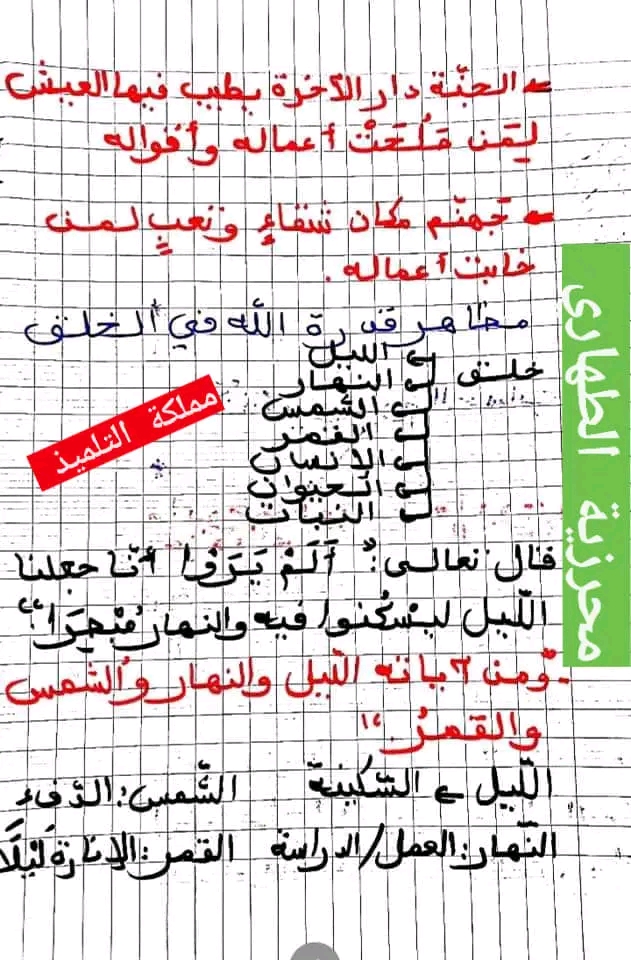 الجنّة دار الآخرة يطيب فيها العيش
لِمَن صَلُحَتْ أعماله وأقواله
جهنّم مكان شقاءٍ وتعبٍ لمن
خابت أعماله.
مظاهر قدرة الله في الخلق
خلق
الليل
النهار
الشمس
القمر
الإنسان
الحيوان
النبات
مملكة التلميذ
محرزية الطهاري
قال تعالى: "أَلَمْ يَرَوْا أنّا جعلنا
اللّيل ليسْكنوا فيه والنهار مُبْصِرًا"
- "ومن آياته اللّيل والنهار والشمس
والقمرُ"
اللّيل السّكينة الشّمس: الدّفء
النّهار: العمل/الدراسة القمر: الإنارة لَيْلًا